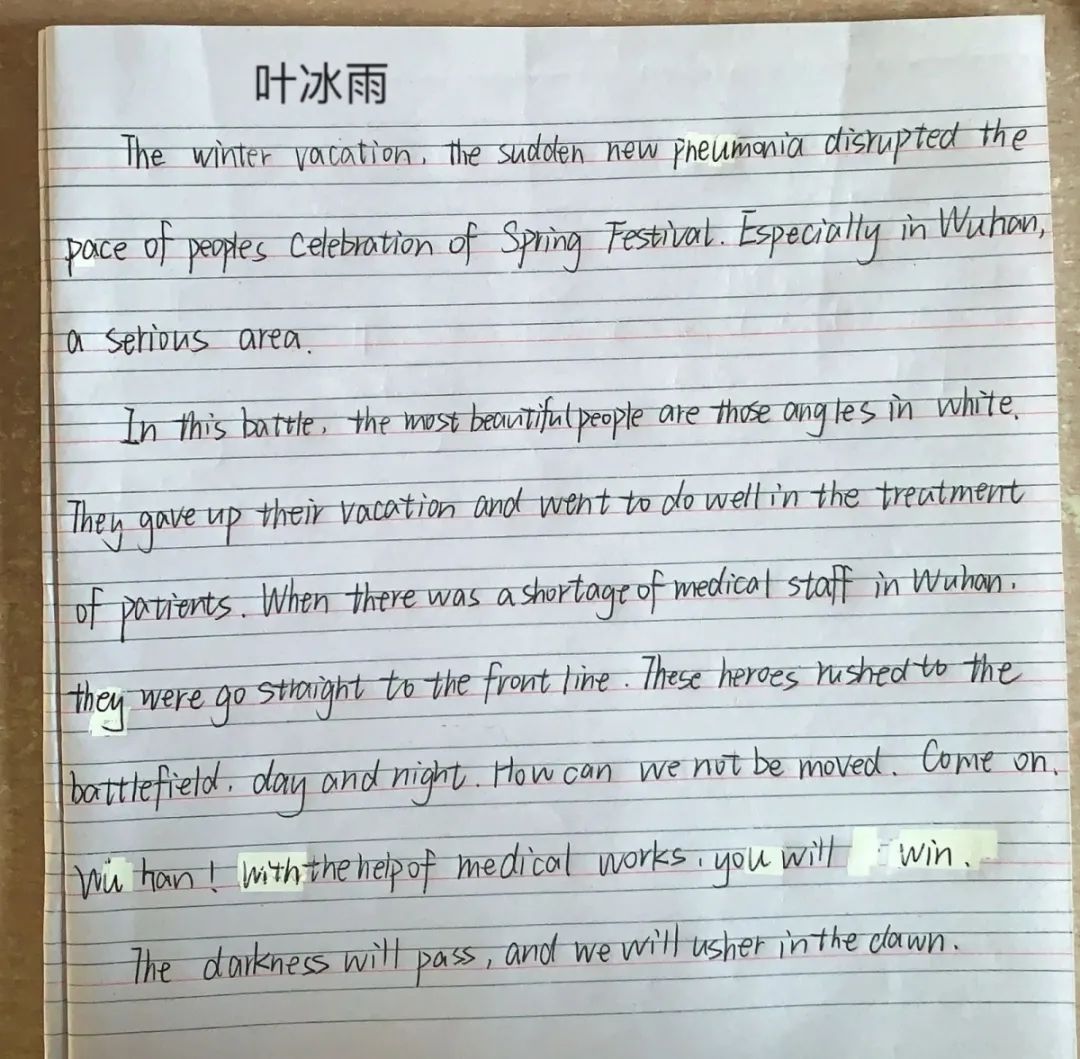 叶冰雨
The winter vacation, the sudden new pneumonia disrupted the
pace of peoples Celebration of Spring Festival. Especially in Wuhan,
a serious area.
In this battle, the most beautiful people are those angles in white.
They gave up their vacation and went to do well in the treatment
of patients. When there was a shortage of medical staff in Wuhan.
they were go straight to the front line. These heroes rushed to the
battlefield, day and night. How can we not be moved. Come on,
Wu han! With the help of medical works, you will win.
The darkness will pass, and we will usher in the dawn.